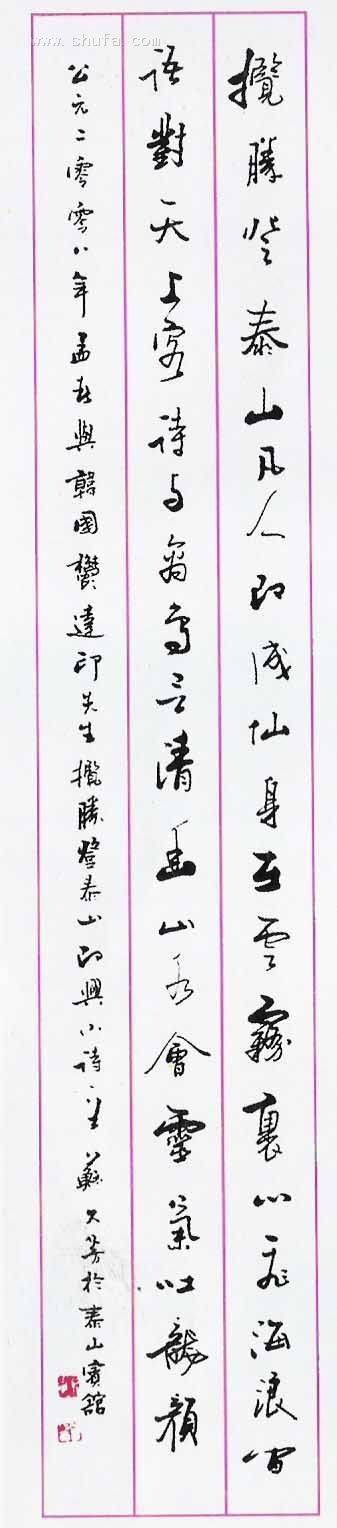 www.shufa.com
攬勝登泰山凡人即成仙身在雲霧裏心飛海浪間
語對天上客詩与言清幽山水會靈氣吐龍顏
公元二零零八年孟春與韓國達印先生攬勝登泰山即興小詩一首蘇於泰山賓館